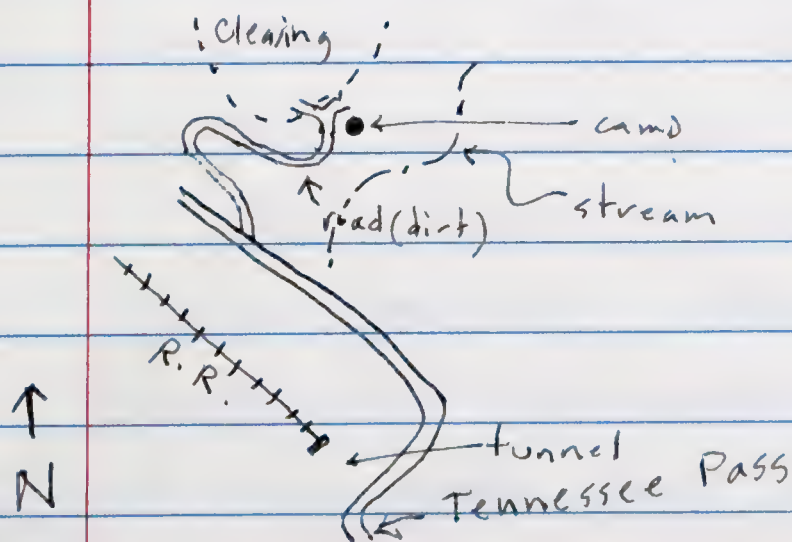 Clearing
camp
stream
road (dirt)
R. R.
N
tunnel
Tennessee Pass